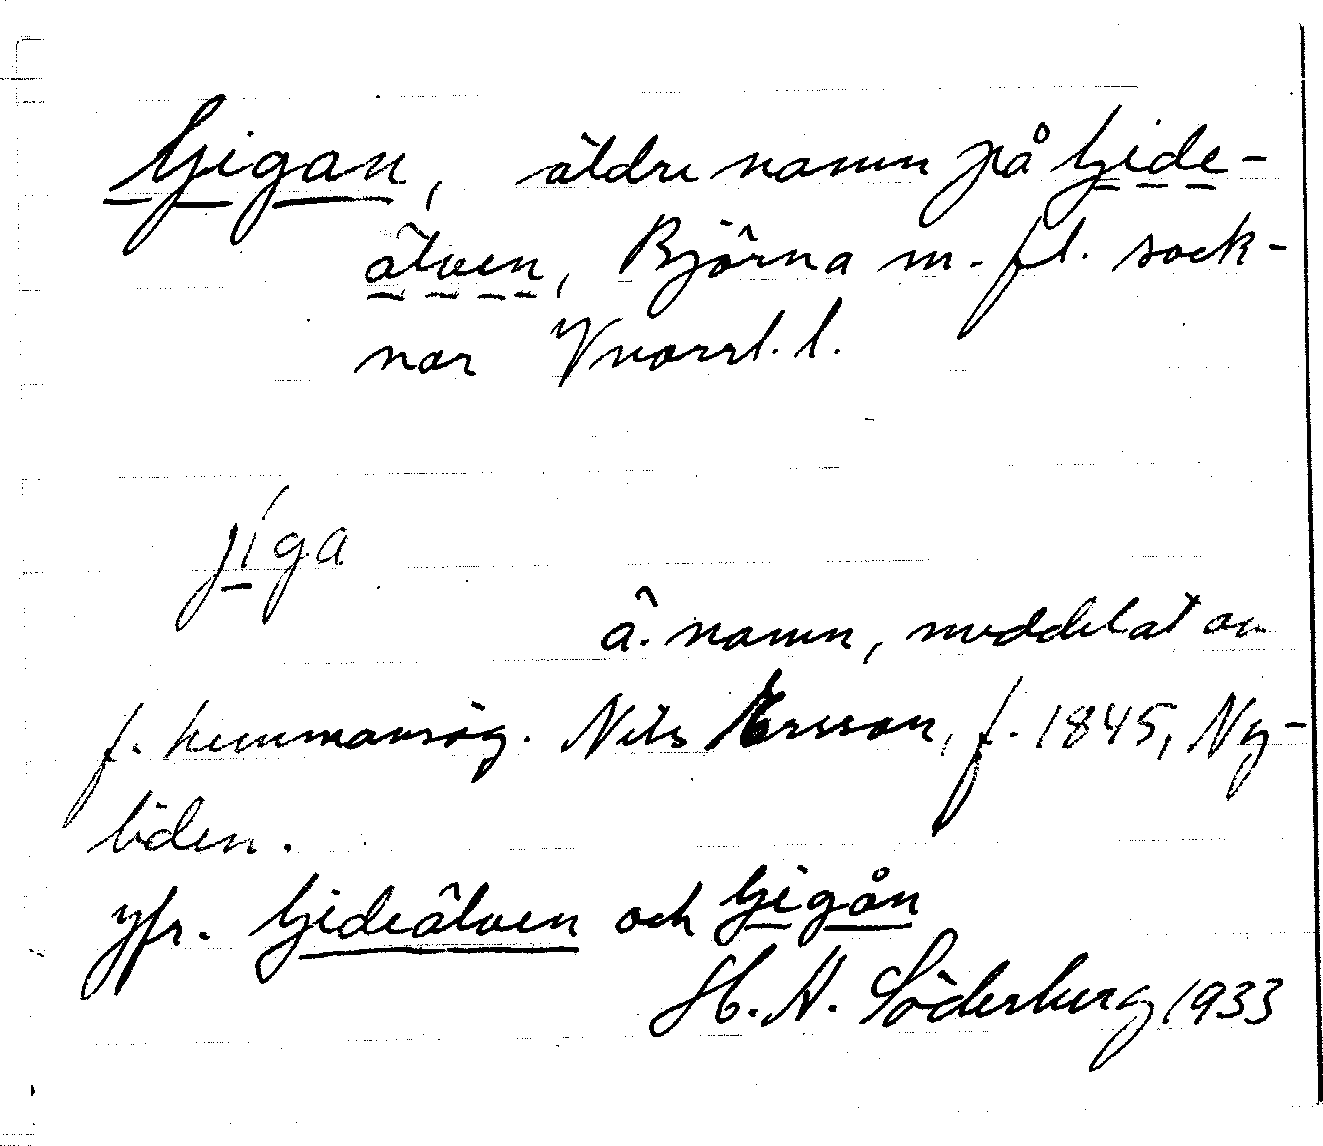 Gigan, äldre namn på Gide-
älven, Björna m. fl. sock-
nar Vnorrl. l.
jíga
å. namn, meddelat av
f. hemmansäg. Nils Ersson, f. 1845, Ny-
liden.
Jfr. Gideälven och Gigån
H. A. Söderberg 1933